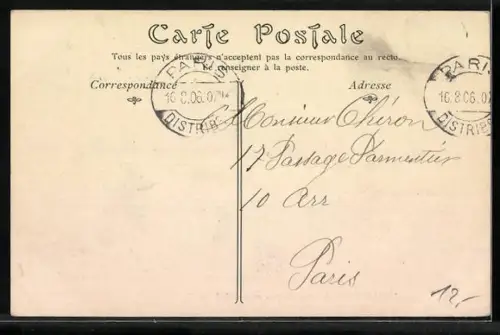 Carte Postale
Tous les pays étrangers n'acceptent pas la correspondance au recto.
Se renseigner à la poste.
Correspondance
Adresse
PARIS
16 8 06
DISTRIB
PARIS
16.8.06.
DISTRIB
Monsieur Chéron
17 Passage Parmentier
10 Arr
Paris
12,-